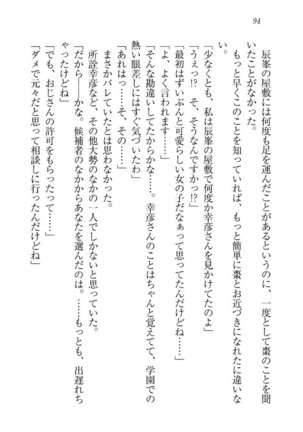 94
辰峯の屋敷には何度も足を運んだことがあるというのに、一度として棗のことを聞
いたことがなかった。
もっと早くこのことを知っていれば、もっと簡単に棗とお近づきになれたに違いな
い。
「少なくとも、私は辰峯の屋敷で何度か幸彦さんを見かけてたのよ」
「うぇっ!?　そ、そうなんですっか!?」
「最初はずいぶんと可愛らしい女の子だなぁって思ってたんだけどね……」
「よ、よく言われます……」
「そんな勘違いしてたからかな……。幸彦さんのことはちゃんと覚えてて、学園での
熱い眼差しにはすぐ気づいたわ」
「あれはっ……そ、その……」
まさかバレていたとは思わなかった。
所詮幸彦など、その他大勢のなかの一人でしかないと思っていた。
「だから――かな。候補者のなかからあなたを選んだのは。……もっとも、出遅れち
ゃったけどね」
「でも、おじさんの許可をもらったって……」
「ダメで元々だと思って相談しに行ったんだけどね」